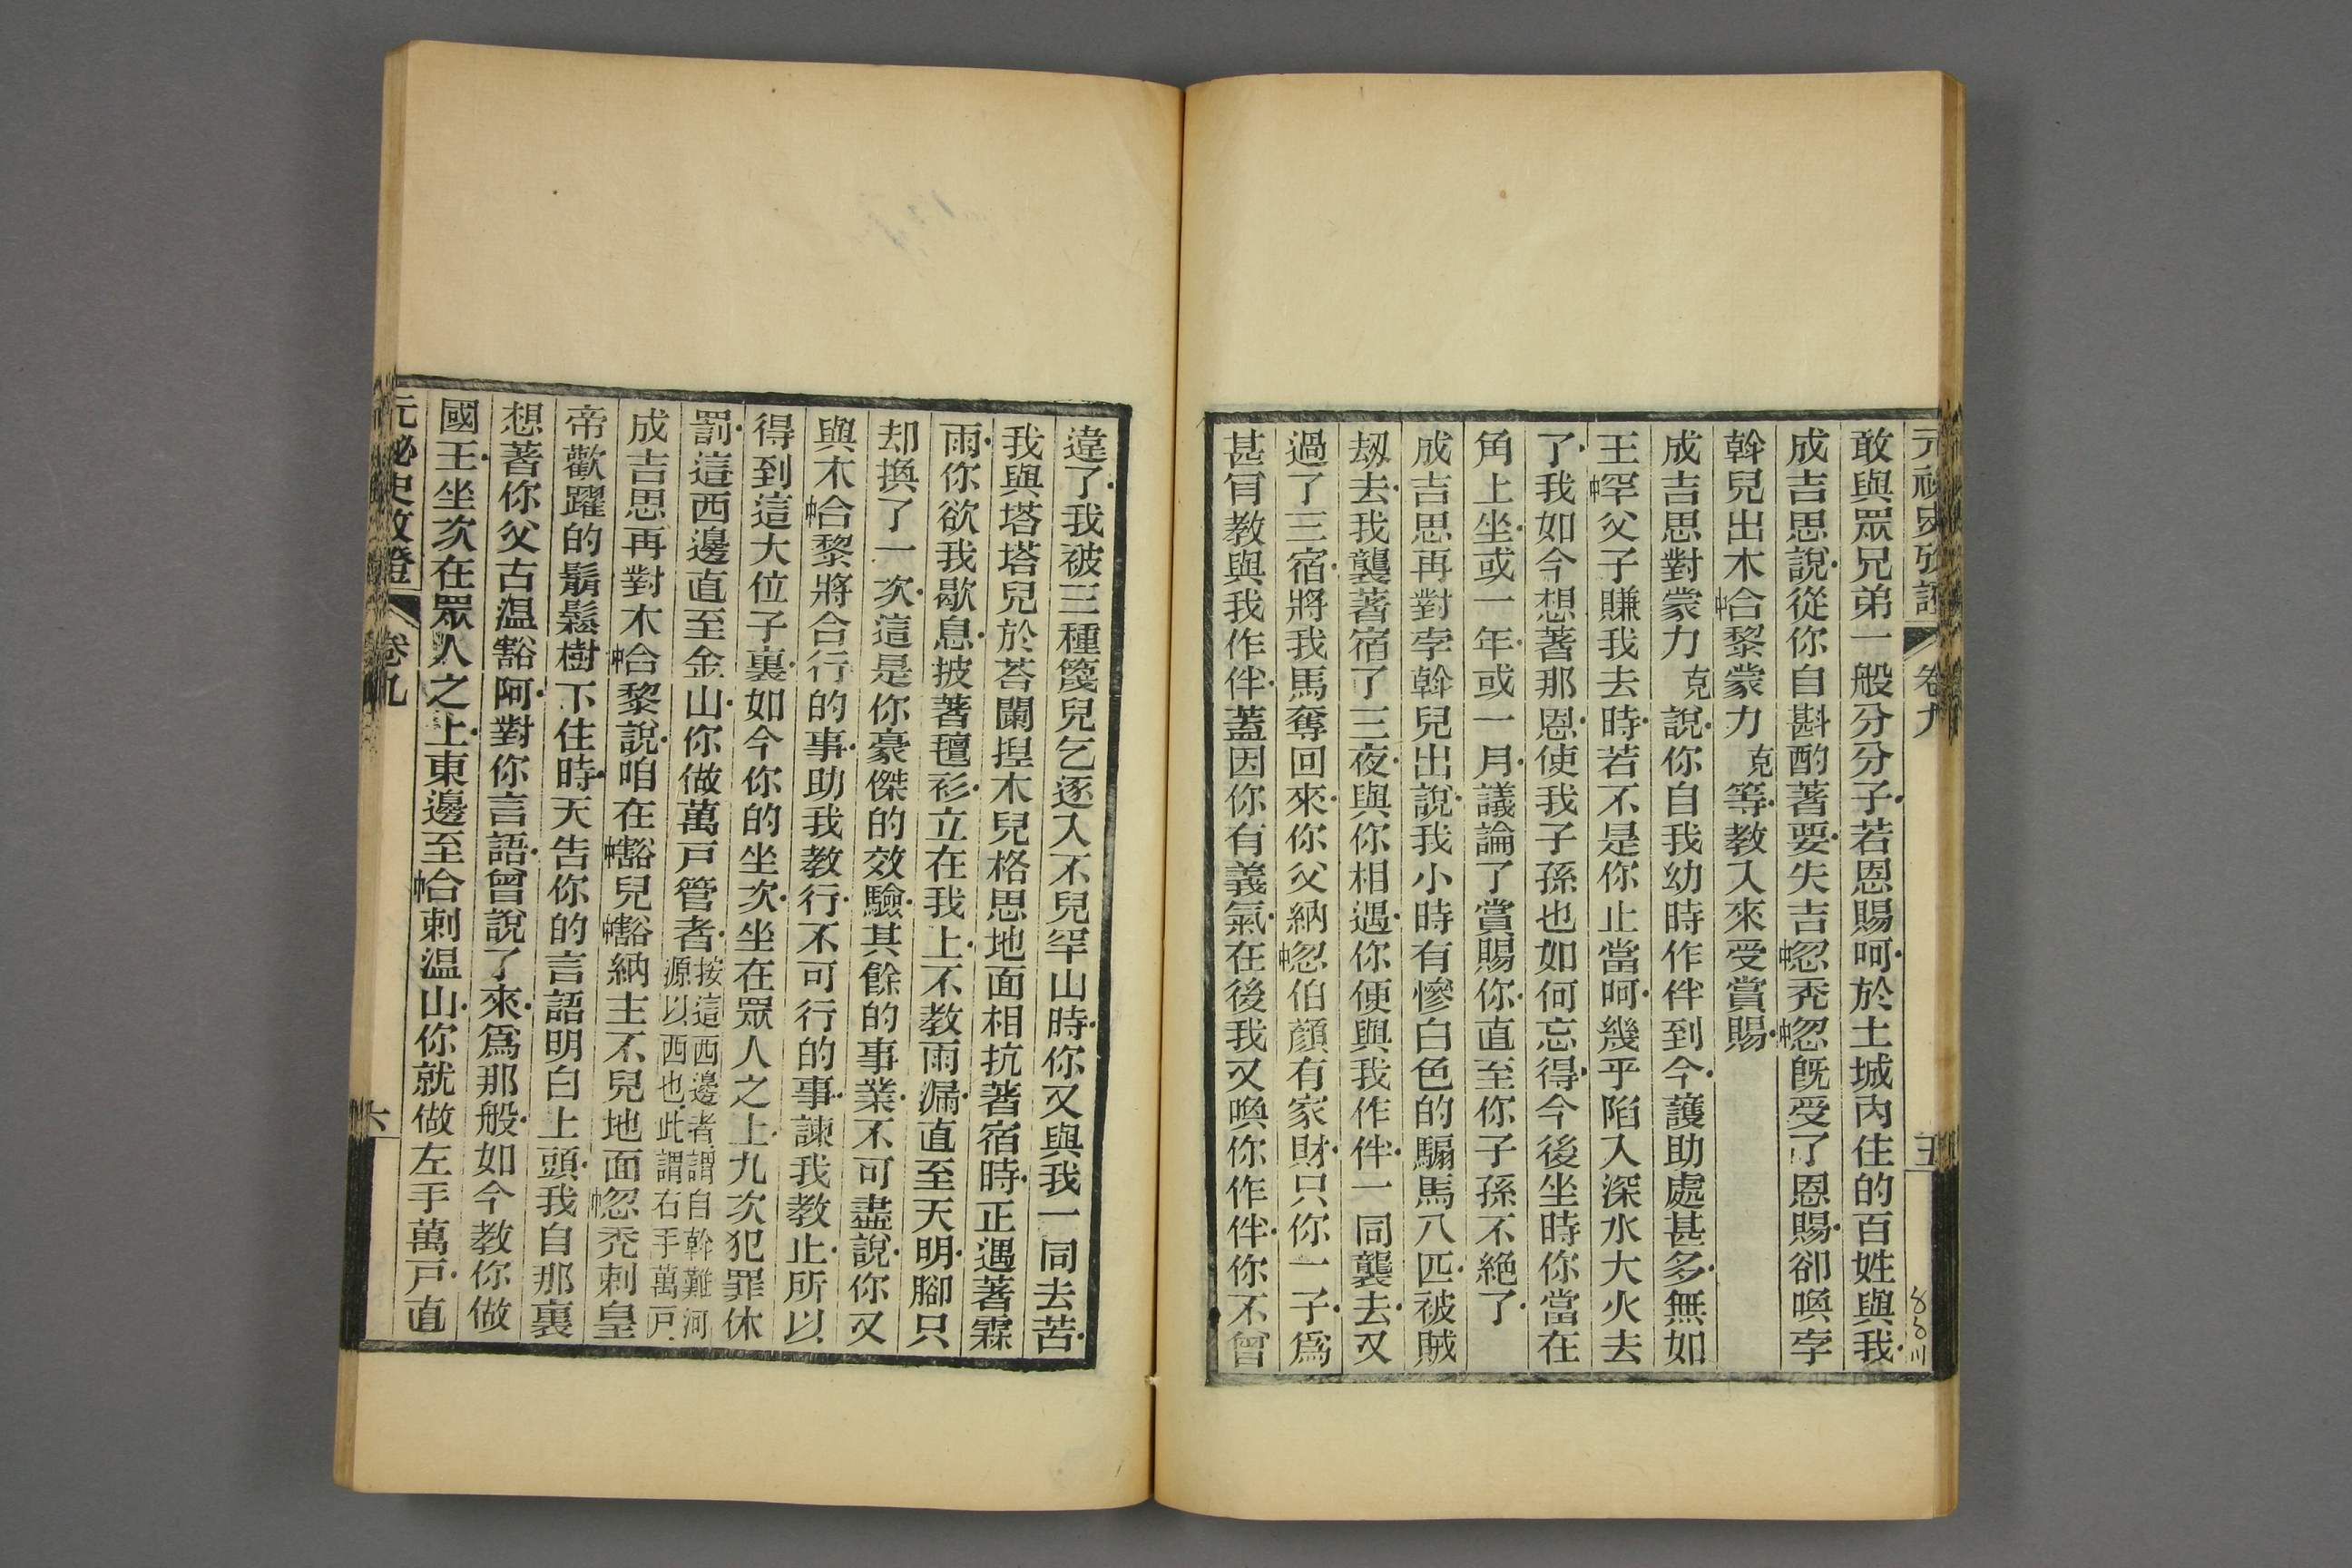 元祕史攷證 卷九 五
敢與眾兄弟一般分分子若恩賜呵於土城內住的百姓與我
成吉思說從你自斟酌著要失吉中忽禿中忽旣受了恩賜卻喚孛
斡兒出木中合黎蒙力克等教入來受賞賜
成吉思對蒙力克說你自我幼時作伴到今護助處甚多無如
王中罕父子賺我去時若不是你止當呵幾乎陷入深水大火去
了我如今想著那恩使我子孫也如何忘得今後坐時你當在
角上坐或一年或一月議論了賞賜你直至你子孫不絕了
成吉思再對孛斡兒出說我小時有慘白色的騸馬八匹被賊
刼去我襲著宿了三夜與你相遇你便與我作伴一同襲去又
過了三宿將我馬奪回來你父納中忽伯顏有家財只你一子爲
甚肯教與我作伴蓋因你有義氣在後我又喚你作伴你不曾
違了我被三種篾兒乞逐入不兒罕山時你又與我一同去苦
我與塔塔兒於荅闌揑木兒格思地面相抗著宿時正遇著霖
雨你欲我歇息披著氊衫立在我上不教雨漏直至天明腳只
却換了一次這是你豪傑的效驗其餘的事業不可盡說你又
與木中合黎將合行的事助我教行不可行的事諫我教止所以
得到這大位子裏如今你的坐次坐在眾人之上九次犯罪休
罰這西邊直至金山你做萬戸管者按這西邊者謂自斡難河源以西也此謂右手萬戸
成吉思再對木中合黎說咱在中豁兒中豁納主不兒地面中忽禿剌皇
帝歡躍的鬅鬆樹下住時天告你的言語明白上頭我自那裏
想著你父古温豁阿對你言語曾說了來爲那般如今教你做
國王坐次在眾人之上東邊至中合剌温山你就做左手萬戸直
元祕史攷證 卷九 六